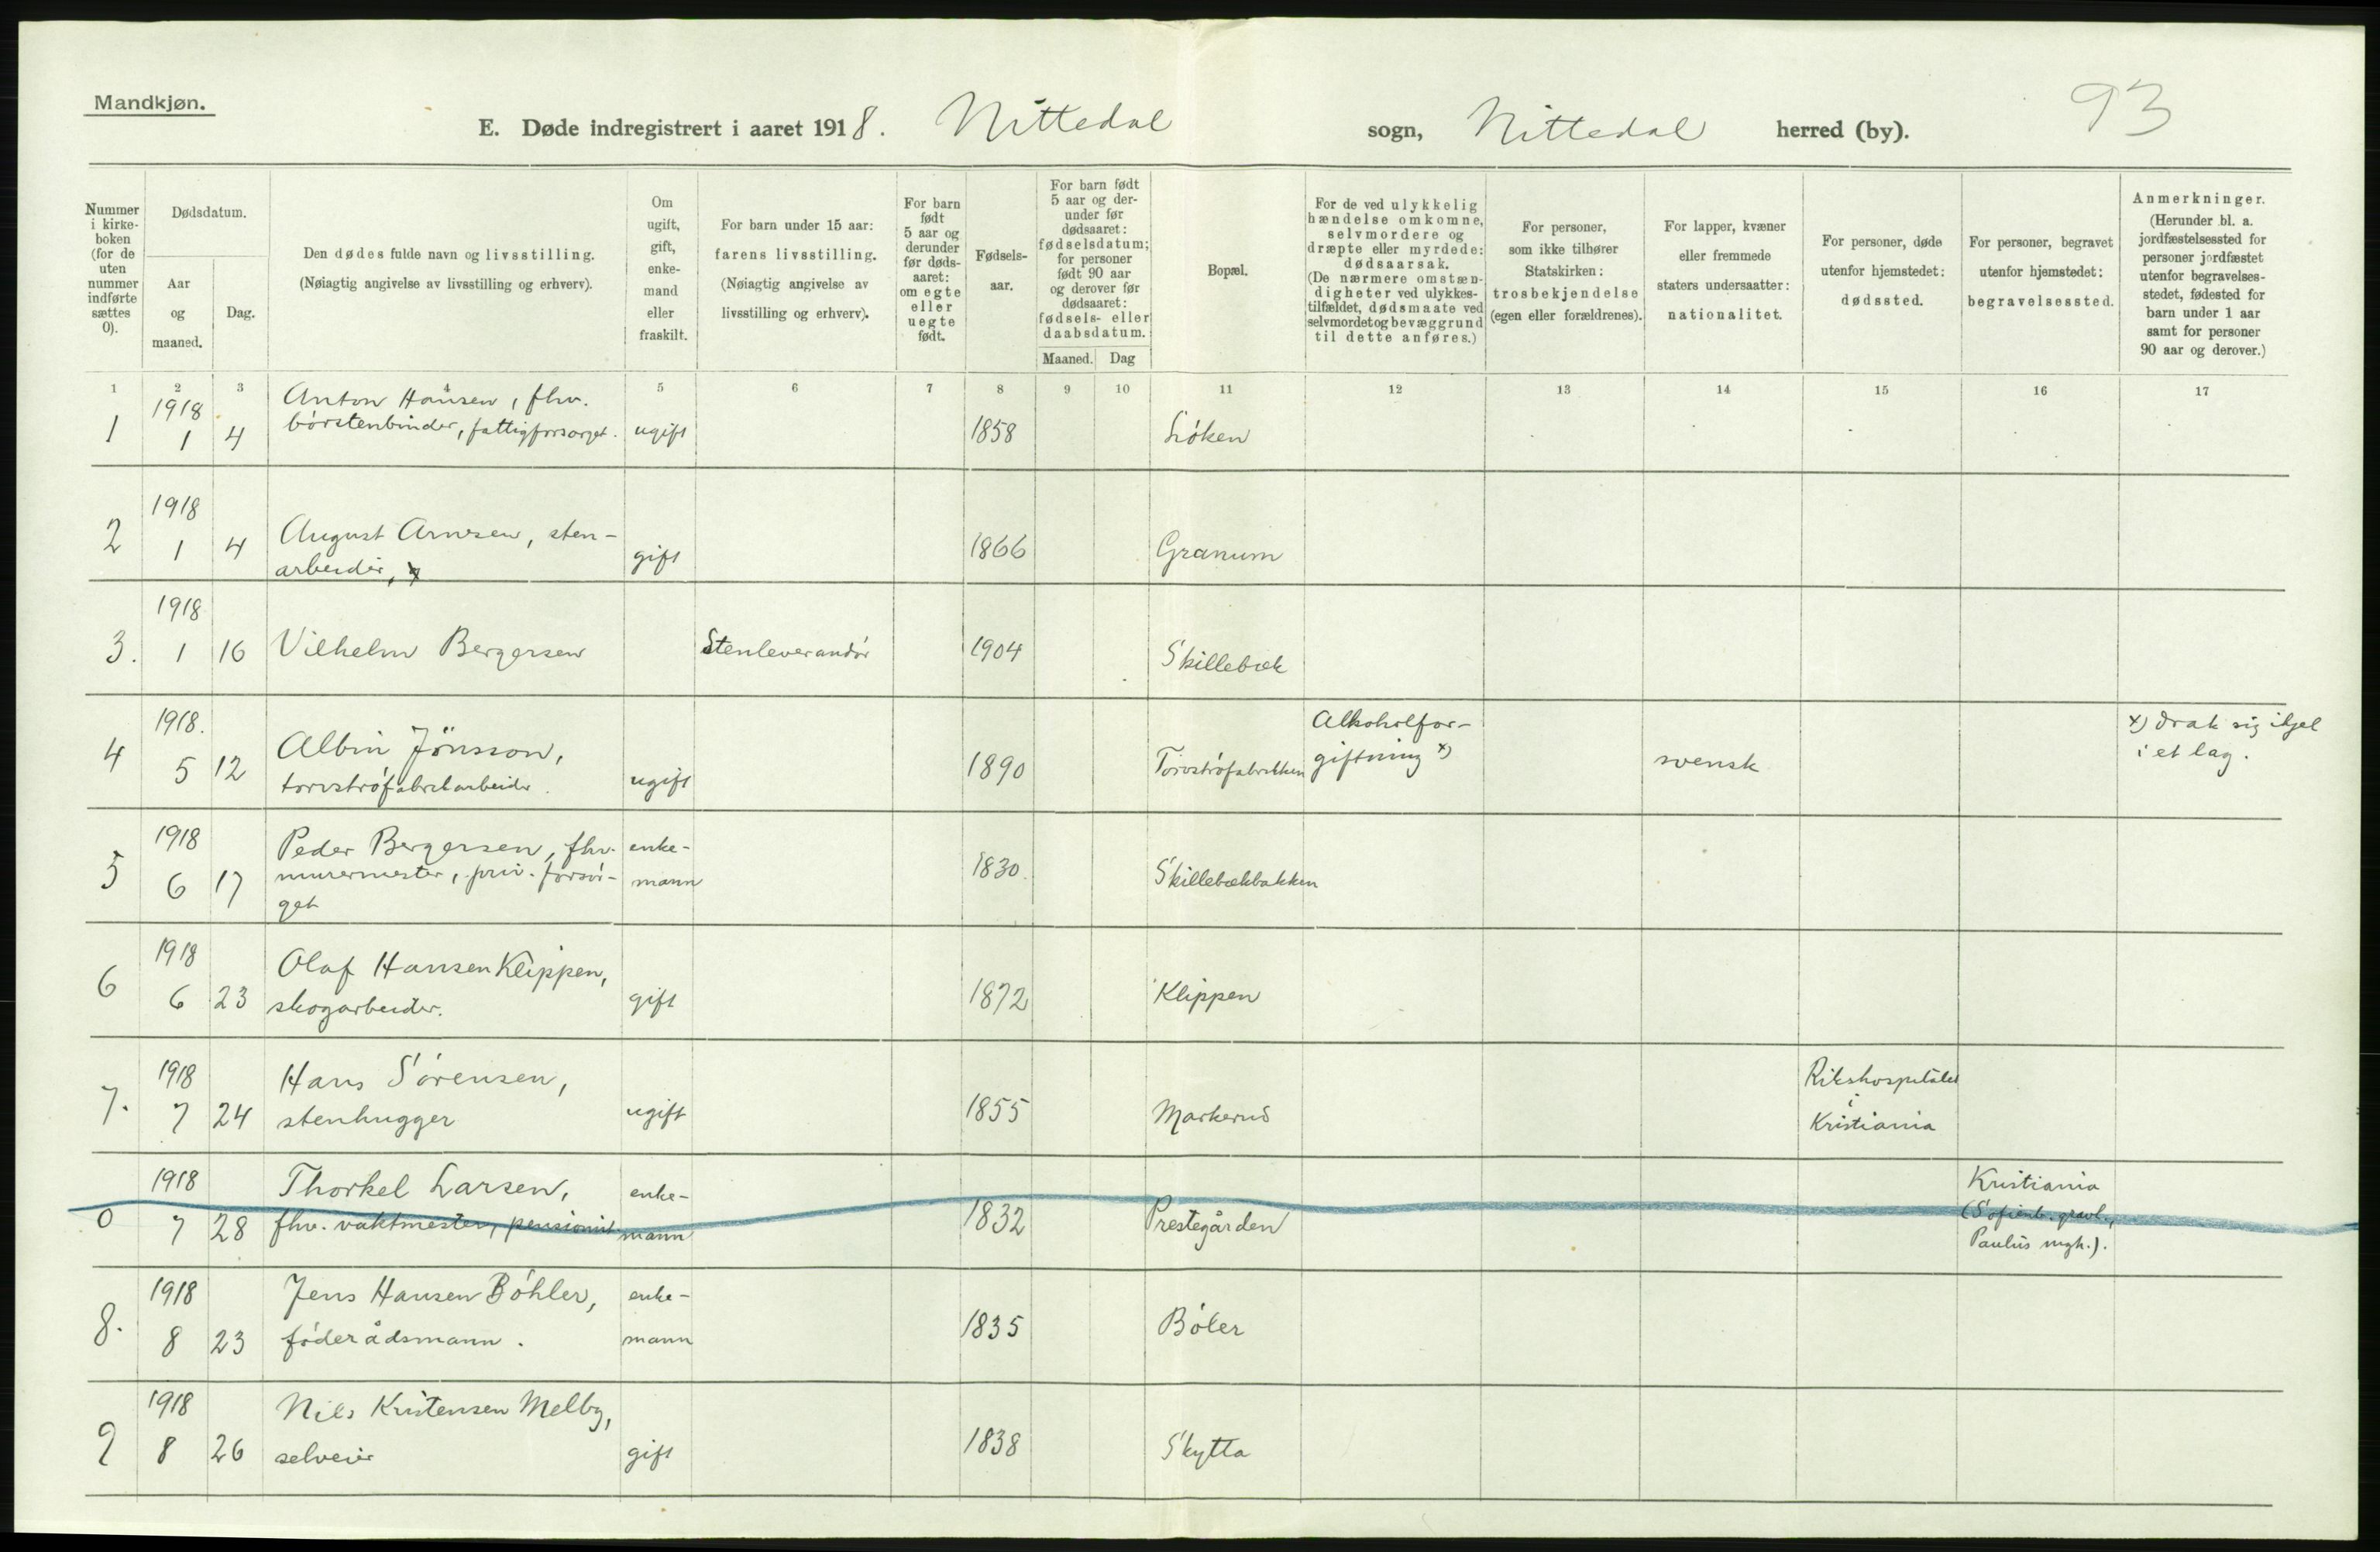 Mandkjøn.
93
E. Døde indregistrert i aaret 1918. Nittedal sogn, Nittedal herred (by).
Nummer i kirke-boken (for de uten nummer indførte sættes 0).
Dødsdatum.
Aar og maaned.
Dag.
Den dødes fulde navn og livsstilling.
(Nøiagtig angivelse av livsstilling og erhverv).
Om ugift, gift, enke-mand eller fraskilt.
For barn under 15 aar: farens livsstilling.
(Nøiagtig angivelse av livsstilling og erhverv).
For barn født 5 aar og derunder før døds-aaret: om egte eller uegte født.
Fødsels-aar.
For barn født 5 aar og der-under før dødsaaret: fødselsdatum; for personer født 90 aar og derover før dødsaaret: fødsels- eller daabsdatum.
Maaned. Dag
Bopæl.
For de ved ulykkelig hændelse omkomne, selvmordere og dræpte eller myrdede: dødsaarsak.
(De nærmere omstæn-digheter ved ulykkes-tilfældet, dødsmaate ved selvmordet og bevæggrund til dette anføres.)
For personer, som ikke tilhører Statskirken: trosbekjendelse (egen eller forældrenes).
For lapper, kvæner eller fremmede staters undersaatter: nationalitet.
For personer, døde utenfor hjemstedet: dødssted.
For personer, begravet utenfor hjemstedet: begravelsessted.
Anmerkninger.
(Herunder bl. a. jordfæstelsessted for personer jordfæstet utenfor begravelses-stedet, fødested for barn under 1 aar samt for personer 90 aar og derover.)
1 2 3 4 5 6 7 8 9 10 11 12 13 14 15 16 17
1918 Anton Hansen, fhv.
1 1 4 børstenbinder, fattigforsørget. ugift 1858 Løken
1918
2 1 4 August Arnesen, sten-
arbeider, gift 1866 Granum
1918
3. 1 16 Vilhelm Bergersen Stenleverandør 1904 Skillebæk
1918. Alkoholfor- x) drak sig ihjel
4 5 12 Albin Jönsson, giftning x) svensk i et lag.
torvstrøfabrikarbeider. ugift 1890 Torvstrøfabrikken
1918 Peder Bergersen, fhv. enke-
5 6 17 murermester, priv. forsør- mann 1830. Skillebækbakken
get
1918 Olaf Hansen Klippen,
6 6 23 skogarbeider. gift 1872 Klippen
1918 Hans Sørensen, Rikshospitalet
i
7. 7 24 stenhugger ugift 1855 Markerud Kristiania
1918 Thorkel Larsen, enke- Kristiania
0 7 28 fhv. vaktmester, pensionist mann 1832 Prestegården (Sofienb. gravl.,
Paulus mgh.).
1918 Jens Hansen Bøhler, enke-
8. 8 23 føderådsmann. mann 1835 Bøler
1918 Nils Kristensen Melby,
9 8 26 selveier gift 1838 Skytta